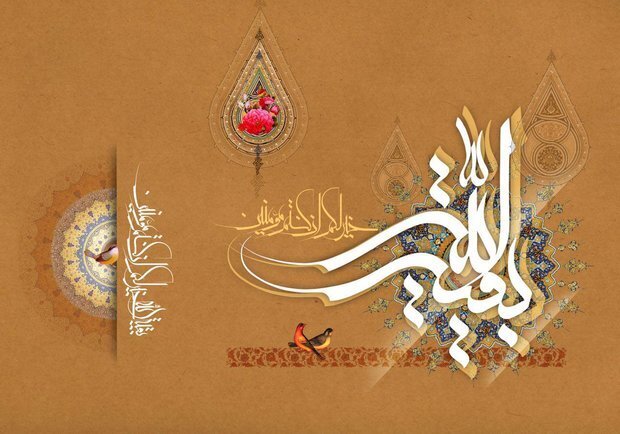 بقیت الله
خیر لکم ان کنتم مؤمنین
بقیت الله خیر لکم ان کنتم مؤمنین